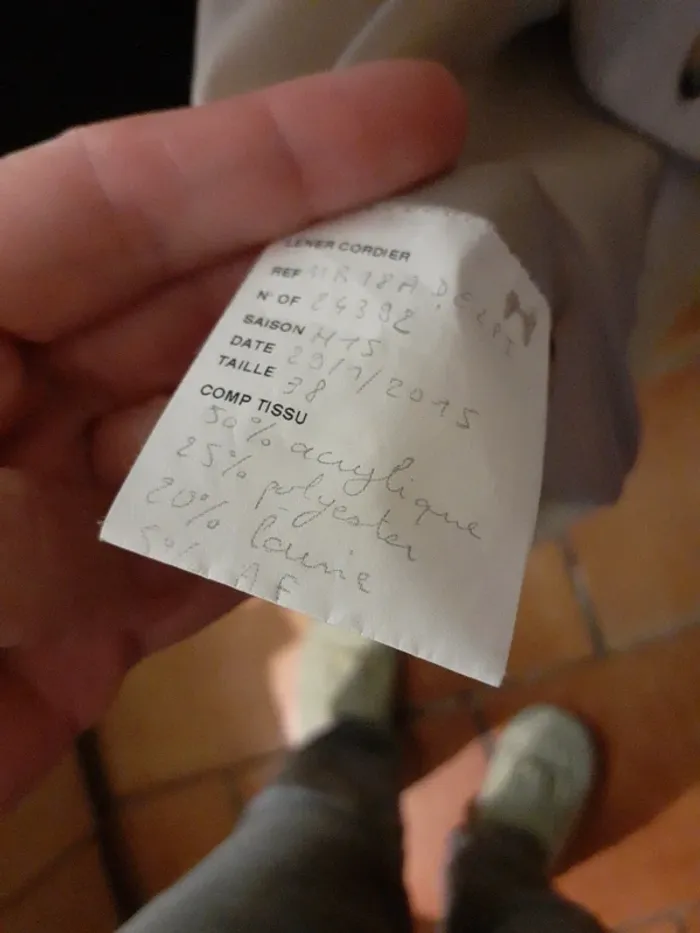 LENER CORDIER
REF
N° OF 24392
SAISON H15
DATE 29/1/2015
TAILLE 38
COMP TISSU
50% acrylique
25% polyester
20% laine
5% AF